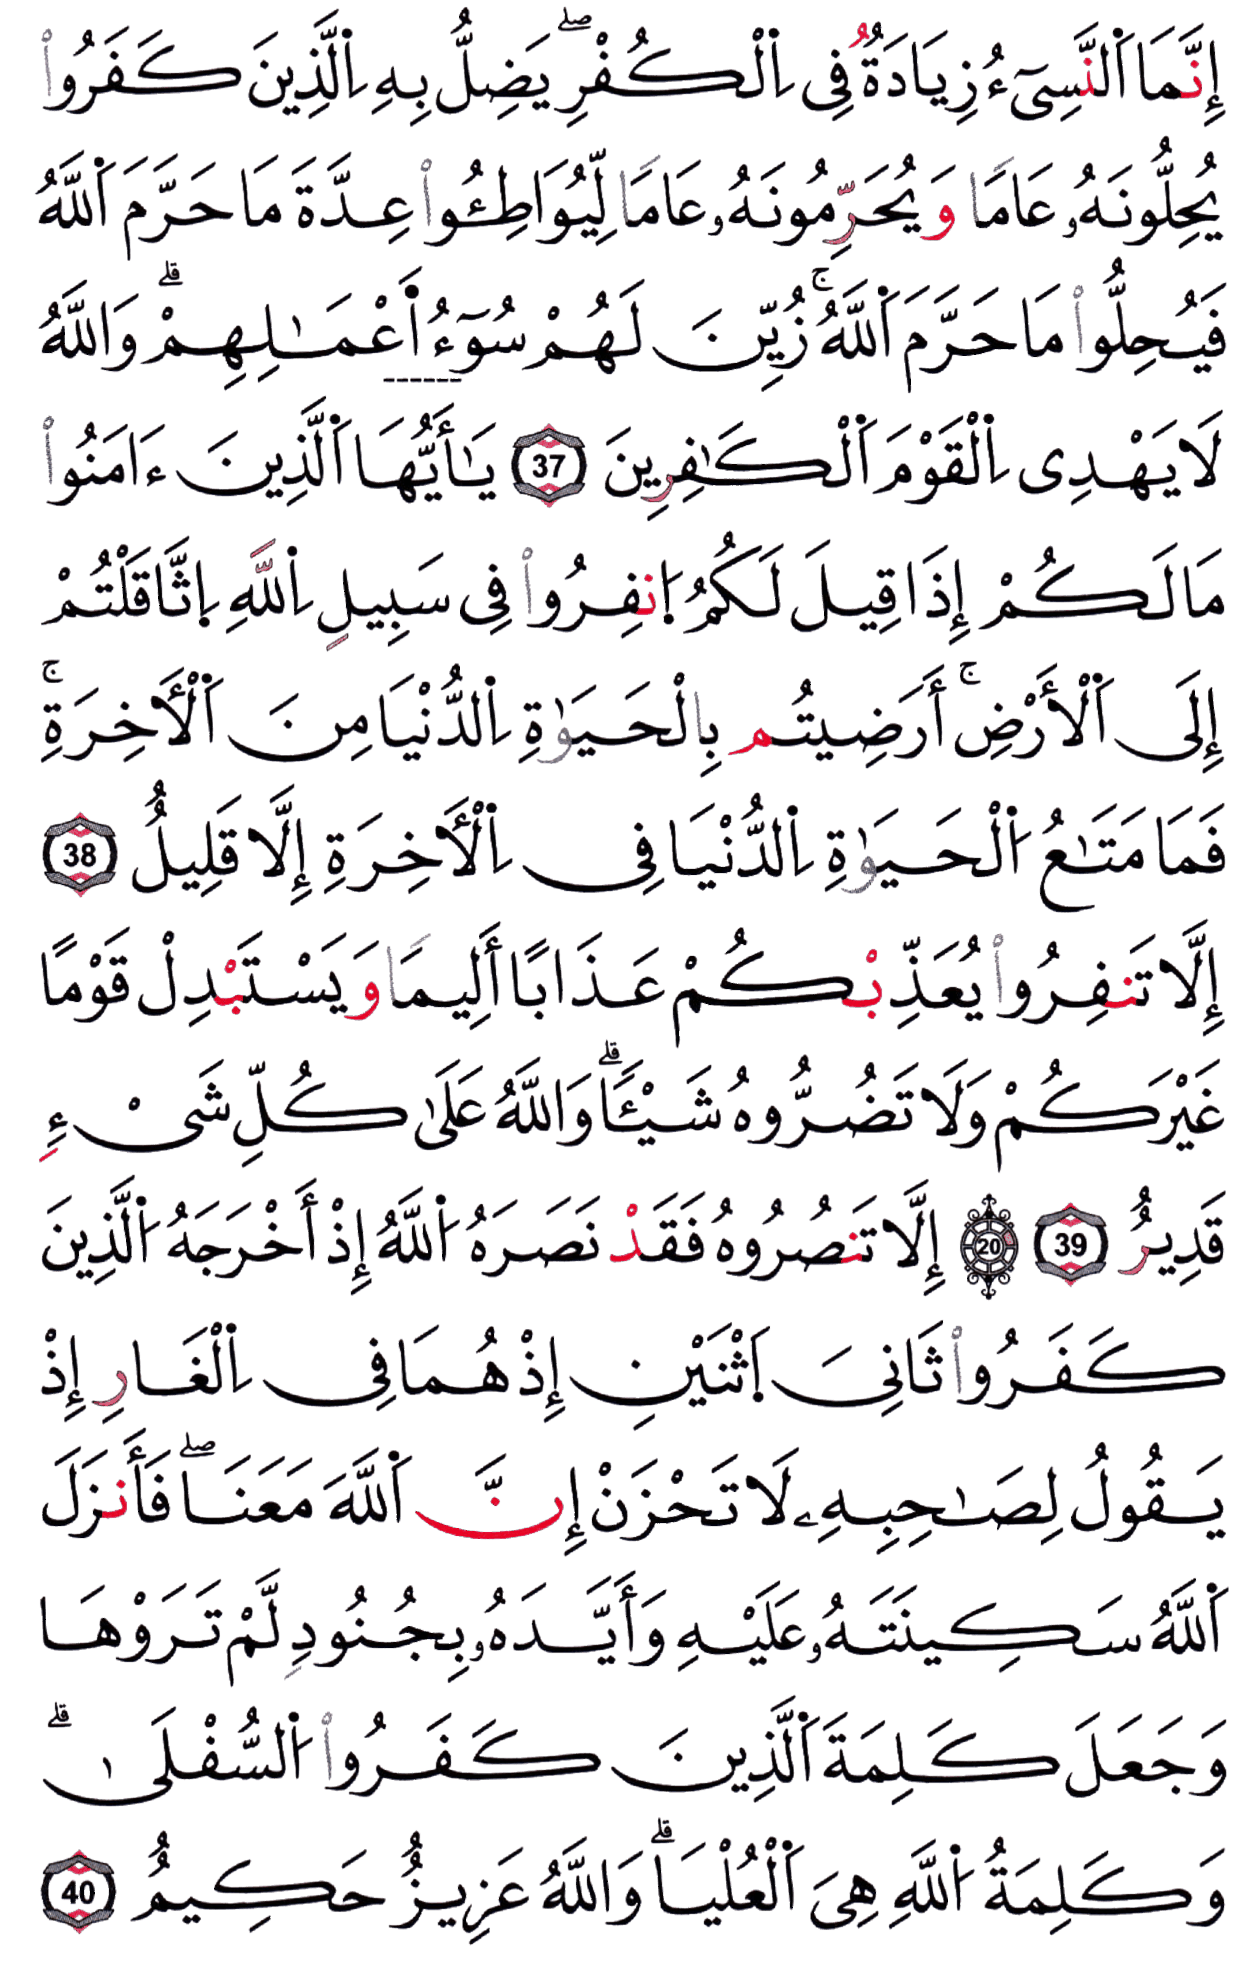 إِنَّمَا اَ۬لنَّسِےٓءُ زِيَادَةٞ فِي اِ۬لْكُفْرِۖ يَضِلُّ بِهِ اِ۬لَّذِينَ كَفَرُواْ
يُحِلُّونَهُۥ عَامٗا وَيُحَرِّمُونَهُۥ عَامٗا لِّيُوَاطِـُٔواْ عِدَّةَ مَا حَرَّمَ اَ۬للَّهُ
فَيُحِلُّواْ مَا حَرَّمَ اَ۬للَّهُۚ زُيِّنَ لَهُمْ سُوٓءُ اَ۬عْمَٰلِهِمْۗ وَاللَّهُ
لَا يَهْدِي اِ۬لْقَوْمَ اَ۬لْكَٰفِرِينَ 37 يَٰأَيُّهَا اَ۬لَّذِينَ ءَامَنُواْ
مَا لَكُمْ إِذَا قِيلَ لَكُمُ اُ۪نفِرُواْ فِي سَبِيلِ اِ۬للَّهِ اِ۪ثَّاقَلْتُمْ
إِلَى اَ۬لْأَرْضِۚ أَرَضِيتُم بِالْحَيَوٰةِ اِ۬لدُّنْيَا مِنَ اَ۬لْأٓخِرَةِۚ
فَمَا مَتَٰعُ اُ۬لْحَيَوٰةِ اِ۬لدُّنْيَا فِي اِ۬لْأٓخِرَةِ إِلَّا قَلِيلٌ 38
إِلَّا تَنفِرُواْ يُعَذِّبْكُمْ عَذَابًا أَلِيمٗا وَيَسْتَبْدِلْ قَوْمًا
غَيْرَكُمْ وَلَا تَضُرُّوهُ شَيْـًٔاۗ وَاللَّهُ عَلَىٰ كُلِّ شَيْءٖ
قَدِيرٌ 39 20 إِلَّا تَنصُرُوهُ فَقَدْ نَصَرَهُ اُ۬للَّهُ إِذْ أَخْرَجَهُ اُ۬لَّذِينَ
كَفَرُواْ ثَانِيَ اَ۪ثْنَيْنِ إِذْ هُمَا فِي اِ۬لْغَارِ إِذْ
يَقُولُ لِصَٰحِبِهِۦ لَا تَحْزَنْ إِنَّ اَ۬للَّهَ مَعَنَاۖ فَأَنزَلَ
اَ۬للَّهُ سَكِينَتَهُۥ عَلَيْهِ وَأَيَّدَهُۥ بِجُنُودٖ لَّمْ تَرَوْهَا
وَجَعَلَ كَلِمَةَ اَ۬لَّذِينَ كَفَرُواْ اُ۬لسُّفْلَىٰۗ
وَكَلِمَةُ اُ۬للَّهِ هِيَ اَ۬لْعُلْيَاۗ وَاللَّهُ عَزِيزٌ حَكِيمٌ 40